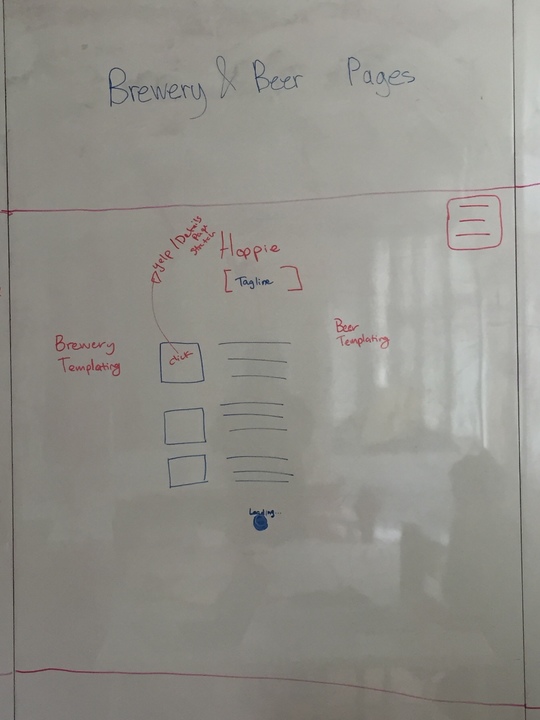 Brewery & Beer Pages
Yelp / Details
Page
Stretch
Hoppie
[Tagline]
Brewery
Templating
click
Beer
Templating
Loading...